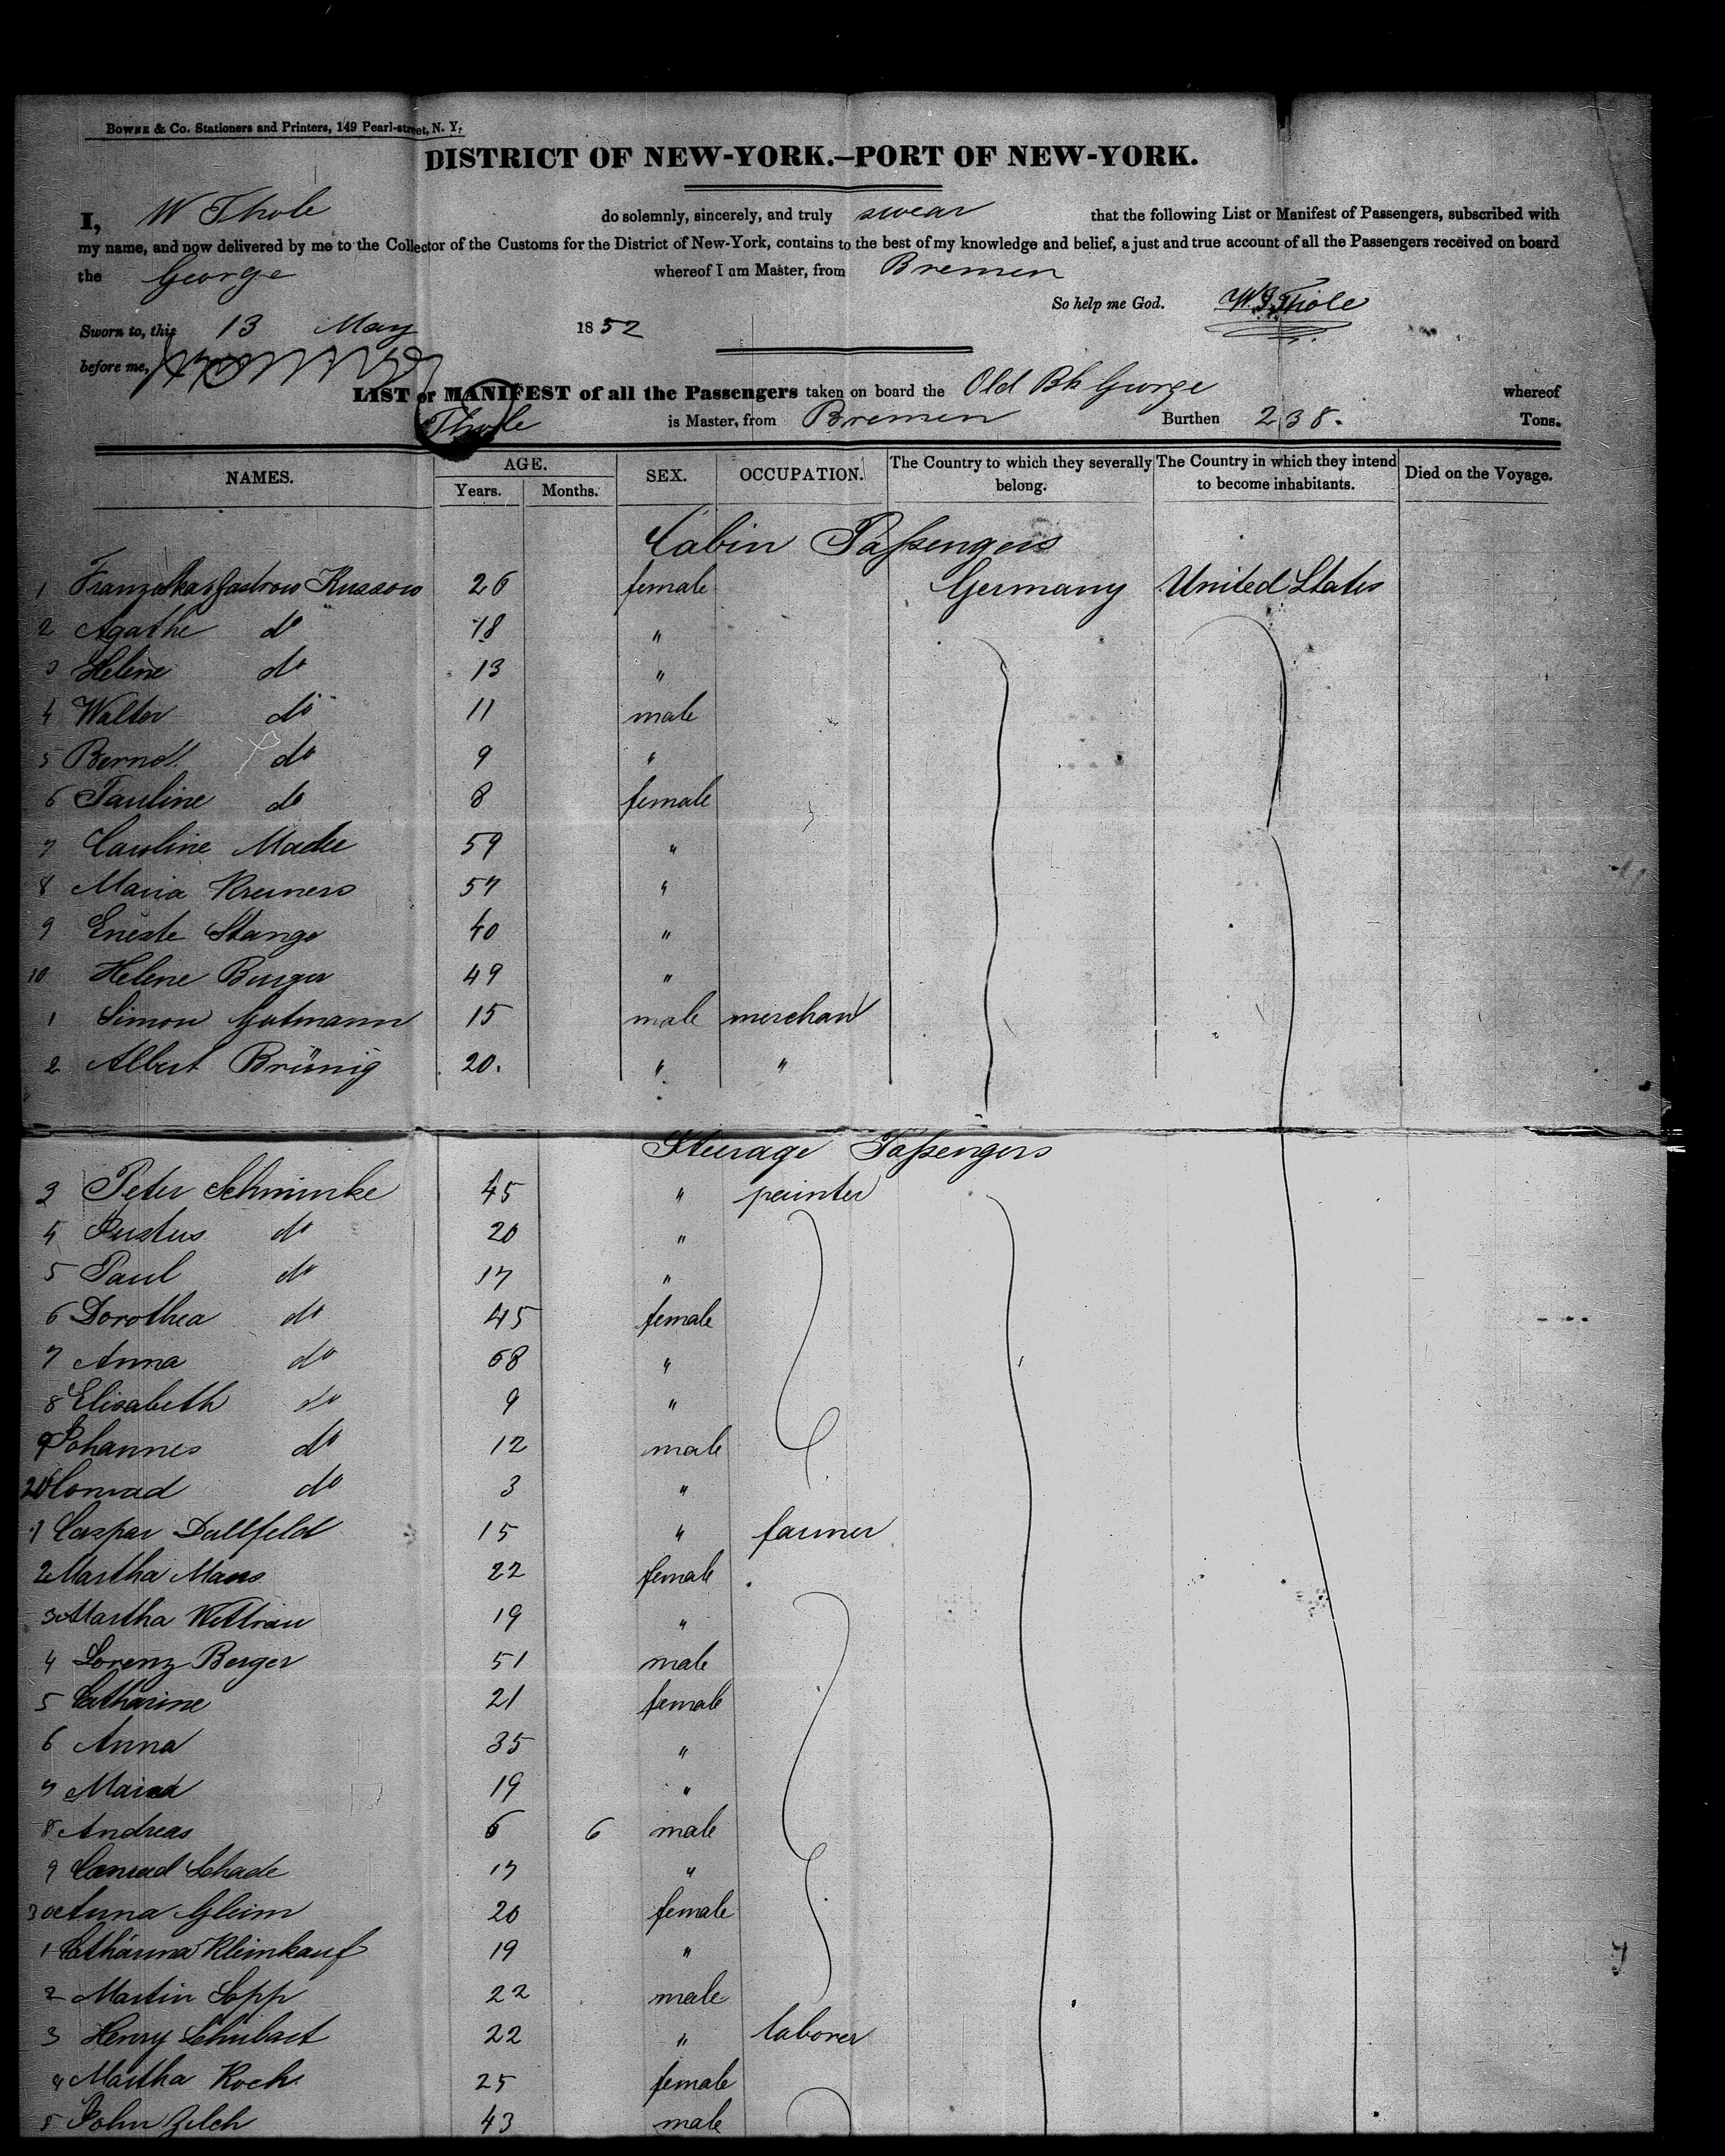 BOWNE & Co. Stationers and Printers, 149 Pearl-street, N. Y.
DISTRICT OF NEW-YORK.—PORT OF NEW-YORK.
I, W Thole do solemnly, sincerely, and truly swear that the following List or Manifest of Passengers, subscribed with
my name, and now delivered by me to the Collector of the Customs for the District of New-York, contains to the best of my knowledge and belief, a just and true account of all the Passengers received on board
the George whereof I am Master, from Bremen
So help me God. Thole
Sworn to, this 13 May 1852
before me,
LIST or MANIFEST of all the Passengers taken on board the Old Bk George whereof
Thole is Master, from Bremen Burthen 238. Tons.
NAMES. AGE. Years. Months. SEX. OCCUPATION. The Country to which they severally belong. The Country in which they intend to become inhabitants. Died on the Voyage.
Cabin Passengers
1 Kussow 26 female Germany United States
2 Agathe do 18 "
3 Helene do 13 "
4 Walter do 11 male
5 Bernd do 9 "
6 Pauline do 8 female
7 Caroline 59 "
8 Maria 57 "
9 Stange 40 "
10 Helene Burger 49 "
1 Simon Gutmann 15 male merchant
2 Albert Brünig 20. " "
Steerage Passengers
3 Peter Schminke 45 " painter
4 Justus do 20 "
5 Paul do 17 "
6 Dorothea do 45 female
7 Anna do "
8 Elisabeth do 9 "
9 Johannes do 12 male
20 Conrad do 3 "
1 Caspar Dallfeld 15 " farmer
2 Martha Maus 22 female
3 Martha 19 "
4 Lorenz Berger 51 male
5 Catharine 21 female
6 Anna 35 "
7 Maria 19 "
8 Andreas 6 male
9 Conrad Schade 17 "
30 Anna Gleim 20 female
1 Catharina Kleinkauf 19 "
2 Martin Sopp 22 male
3 Henry Schubart 22 " laborer
4 Martha Koch 25 female
5 John Zilch 43 male